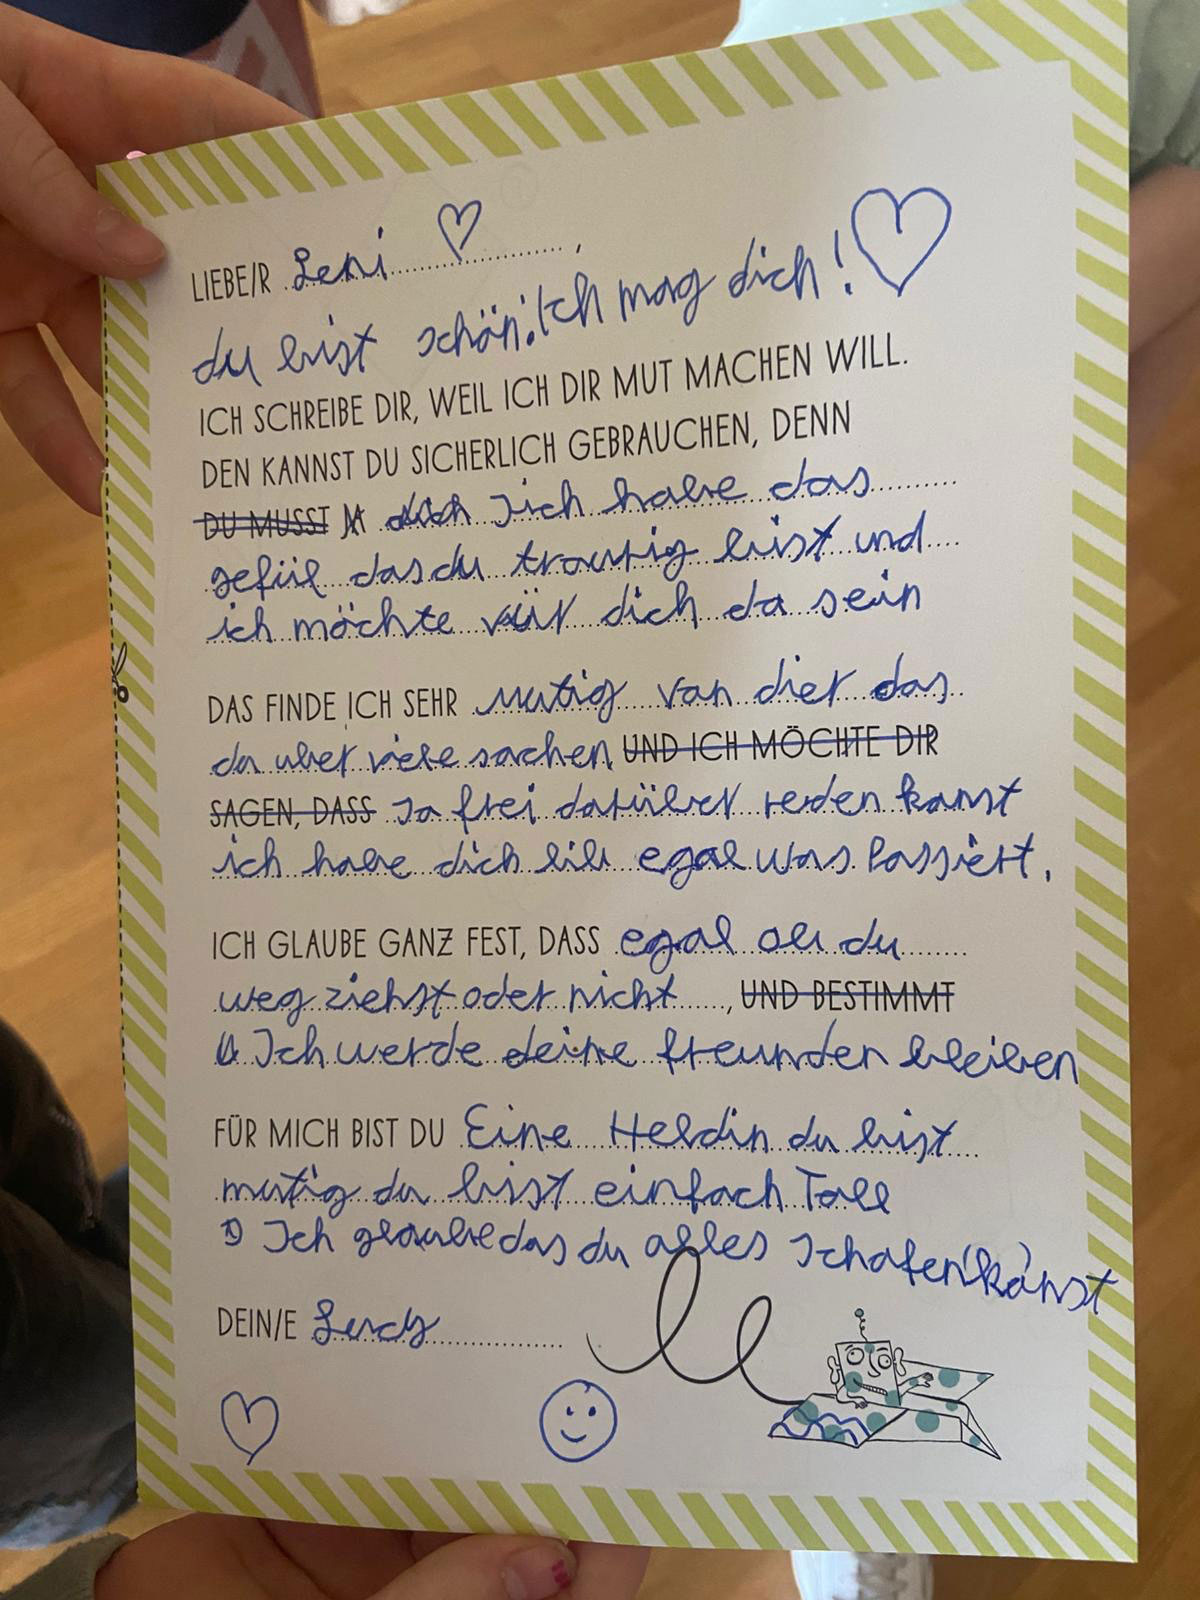 LIEBE/R Leni ♡,
du bist schön! Ich mag dich! ♡
ICH SCHREIBE DIR, WEIL ICH DIR MUT MACHEN WILL.
DEN KANNST DU SICHERLICH GEBRAUCHEN, DENN
DU MUSST Ich habe das
gefül das du traurig bist und
ich möchte vür dich da sein
DAS FINDE ICH SEHR mutig von dier das
du uber viele sachen UND ICH MÖCHTE DIR
SAGEN, DASS Ja frei darüber reden kanst
ich habe dich lib egal was Passiert.
ICH GLAUBE GANZ FEST, DASS egal ob du
weg ziehst oder nicht, UND BESTIMMT
Ich werde deine freunden bleiben
FÜR MICH BIST DU Eine Heldin du bist
mutig du bist einfach Toll
Ich glaube das du alles schafen kanst
DEIN/E